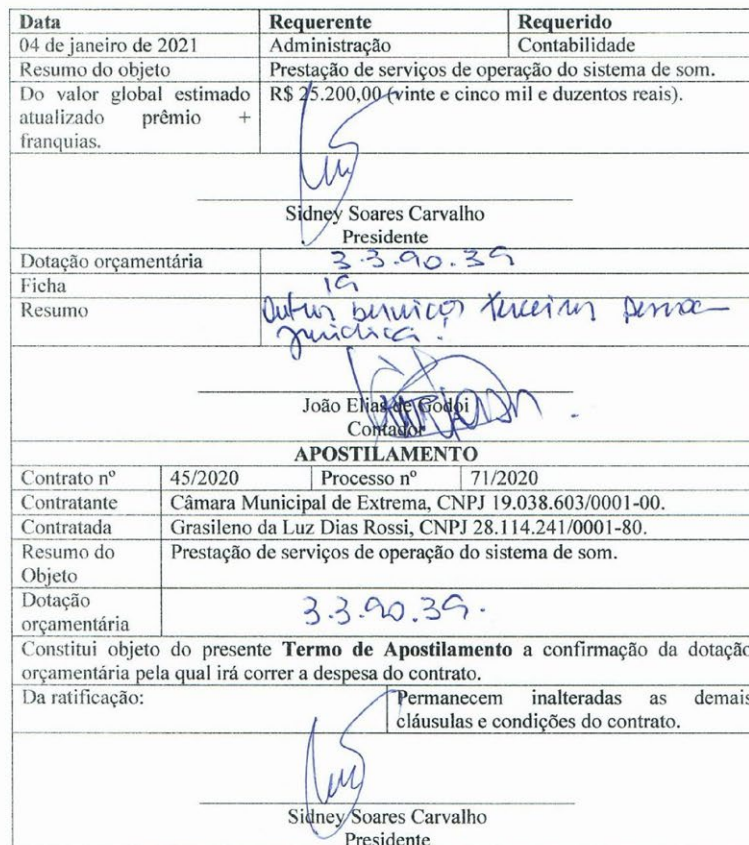 Data Requerente Requerido
04 de janeiro de 2021 Administração Contabilidade
Resumo do objeto Prestação de serviços de operação do sistema de som.
Do valor global estimado R$ 25.200,00 (vinte e cinco mil e duzentos reais).
atualizado prêmio +
franquias.
Sidney Soares Carvalho
Presidente
Dotação orçamentária 3.3.90.39
Ficha 19
Resumo Outros serviços terceiros pessoa
jurídica.
João Elias de Godoi
Contador
APOSTILAMENTO
Contrato nº 45/2020 Processo nº 71/2020
Contratante Câmara Municipal de Extrema, CNPJ 19.038.603/0001-00.
Contratada Grasileno da Luz Dias Rossi, CNPJ 28.114.241/0001-80.
Resumo do Prestação de serviços de operação do sistema de som.
Objeto
Dotação
orçamentária 3.3.90.39.
Constitui objeto do presente Termo de Apostilamento a confirmação da dotação
orçamentária pela qual irá correr a despesa do contrato.
Da ratificação: Permanecem inalteradas as demais
cláusulas e condições do contrato.
Sidney Soares Carvalho
Presidente